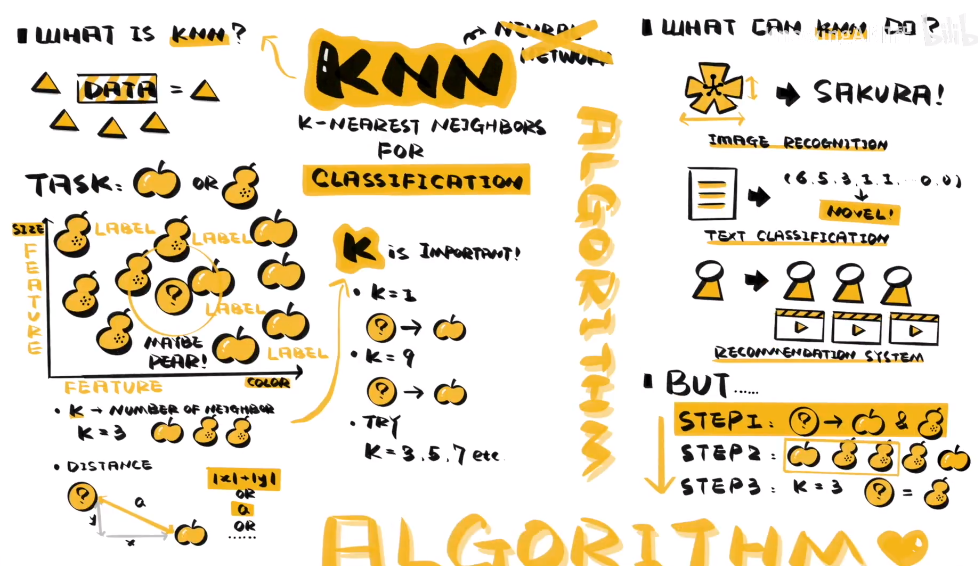 WHAT IS KNN?
DATA =
TASK: OR
SIZE
FEATURE
LABEL
LABEL
LABEL
LABEL
?
MAYBE
PEAR!
FEATURE
COLOR
• K → NUMBER OF NEIGHBOR
K = 3
• DISTANCE
?
a
y
x
|x|+|y|
OR
a
OR
......
KNN
NEURAL
NETWORK
K-NEAREST NEIGHBORS
FOR
CLASSIFICATION
K is IMPORTANT!
• K = 1
? →
• K = 9
? →
• TRY
K = 3.5.7 etc.
ALGORITHM
ALGORITHM
WHAT CAN KNN DO?
bilib
SAKURA!
IMAGE RECOGNITION
(6.5.3.1.1. ... 0.0)
NOVEL!
TEXT CLASSIFICATION
RECOMMENDATION SYSTEM
BUT......
STEP1: ? → &
STEP2:
STEP3: K = 3 ? =